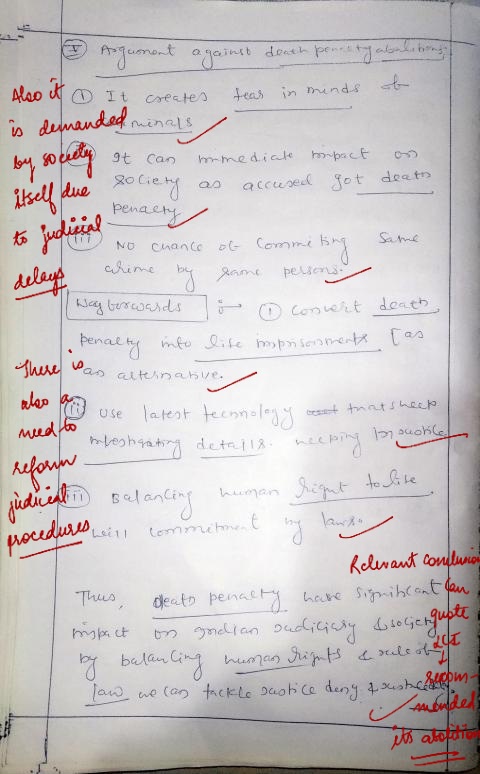 V Argument against death penalty abolition:
Also it is demanded by society itself due to judicial delays
i It creates fear in minds of
minals
It can immediate impact on
society as accused got death
penalty
iii No chance of commiting same
crime by same persons.
Way forwards :→ i convert death
penalty into life imprisonments [as
an alternative.
There is also a need to reform judicial procedures
ii Use latest technology that
investigating details. in justice
iii Balancing human right to life
commitment by laws.
Relevant conclusion
Can quote LCI ↓ recommended its abolition
Thus, death penalty have significant
impact on Indian Judiciary & society
by balancing human rights & rule of
law we can tackle justice deny &